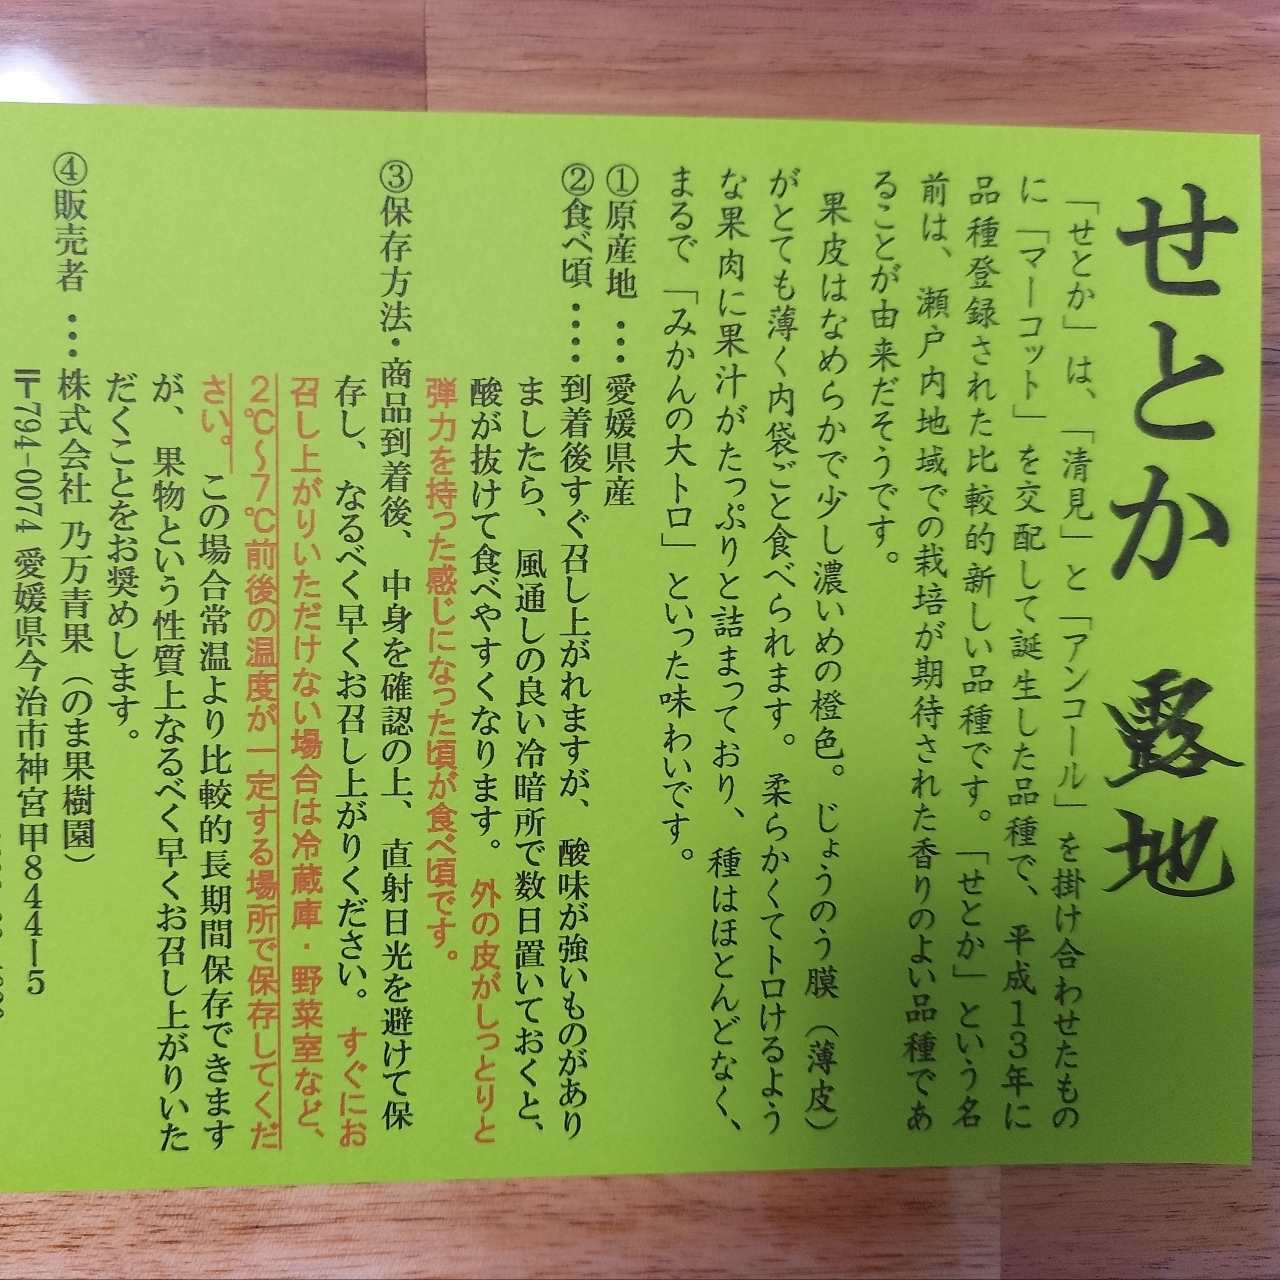 せとか 露地
「せとか」は、「清見」と「アンコール」を掛け合わせたもの
に「マーコット」を交配して誕生した品種で、平成13年に
品種登録された比較的新しい品種です。「せとか」という名
前は、瀬戸内地域での栽培が期待された香りのよい品種であ
ることが由来だそうです。
果皮はなめらかで少し濃いめの橙色。じょうのう膜(薄皮)
がとても薄く内袋ごと食べられます。柔らかくてトロけるよう
な果肉に果汁がたっぷりと詰まっており、種はほとんどなく、
まるで「みかんの大トロ」といった味わいです。
①原産地 …愛媛県産
②食べ頃‥‥到着後すぐ召し上がれますが、酸味が強いものがあり
ましたら、風通しの良い冷暗所で数日置いておくと、
酸が抜けて食べやすくなります。外の皮がしっとりと
弾力を持った感じになった頃が食べ頃です。
③保存方法・商品到着後、中身を確認の上、直射日光を避けて保
存し、なるべく早くお召し上がりください。すぐにお
召し上がりいただけない場合は冷蔵庫・野菜室など、
2℃~7℃前後の温度が一定する場所で保存してくだ
さい。この場合常温より比較的長期間保存できます
が、果物という性質上なるべく早くお召し上がりいた
だくことをお奨めします。
④販売者 …株式会社 乃万青果(のま果樹園)
〒794-0074 愛媛県今治市神宮甲844ー5